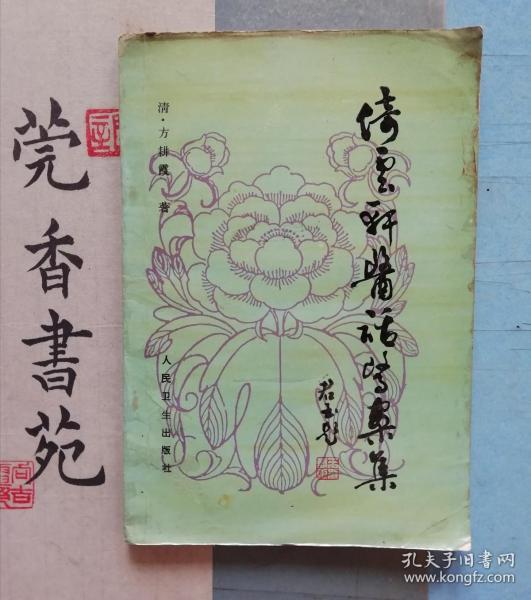 倚云轩醫话醫案集
清·方耕霞 著
人民卫生出版社
君玉题
莞香書苑
孔夫子旧书网
www.kongfz.com